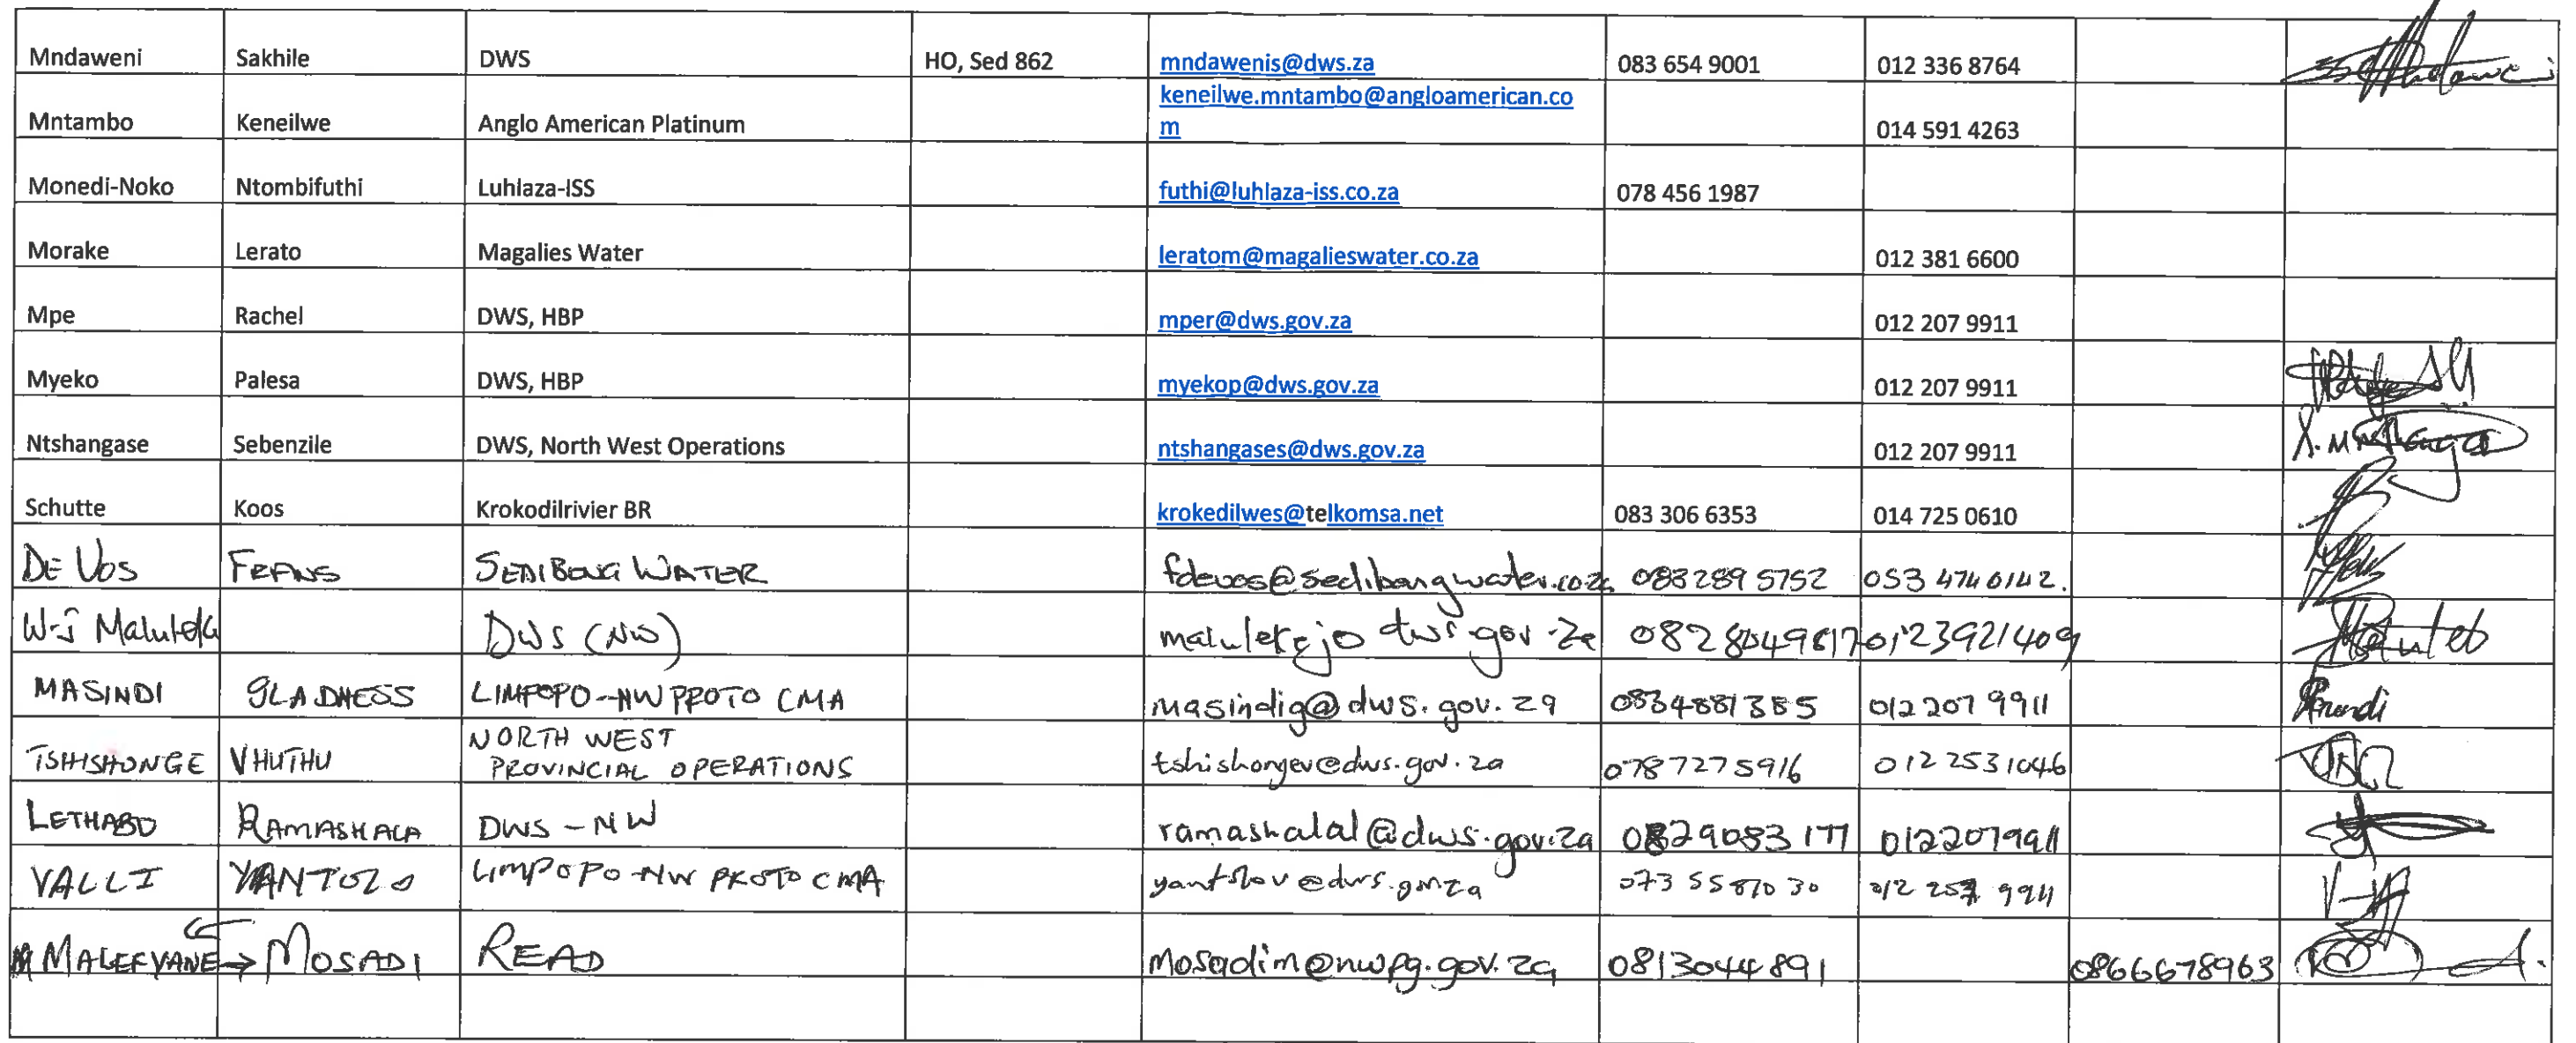 Mndaweni Sakhile DWS HO, Sed 862 mndawenis@dws.za 083 654 9001 012 336 8764
keneilwe.mntambo@angloamerican.co
Mntambo Keneilwe Anglo American Platinum m 014 591 4263
Monedi-Noko Ntombifuthi Luhlaza-ISS futhi@luhlaza-iss.co.za 078 456 1987
Morake Lerato Magalies Water leratom@magalieswater.co.za 012 381 6600
Mpe Rachel DWS, HBP mper@dws.gov.za 012 207 9911
Myeko Palesa DWS, HBP myekop@dws.gov.za 012 207 9911
Ntshangase Sebenzile DWS, North West Operations ntshangases@dws.gov.za 012 207 9911
Schutte Koos Krokodilrivier BR krokedilwes@telkomsa.net 083 306 6353 014 725 0610
DE VOS FRANS SEDIBENG WATER fdevos@sedibengwater.co.za 083 289 5752 053 474 0142.
W-J Maluleka DWS (NW) 0123921409
MASINDI GLADNESS LIMPOPO-NW PROTO CMA masindig@dws.gov.za 0834881385 012 207 9911
NORTH WEST
TSHISHONGE VHUTHU PROVINCIAL OPERATIONS tshishongev@dws.gov.za 0787275916 012 2531046
LETHABO RAMASHALA DWS - NW ramashalal@dws.gov.za 0829083177 0122079911
VALLI YANTOLO LIMPOPO-NW PROTO CMA 073 5587030
MALEFYANE → MOSADI READ mosadim@nwpg.gov.za 0813044891 0866678963